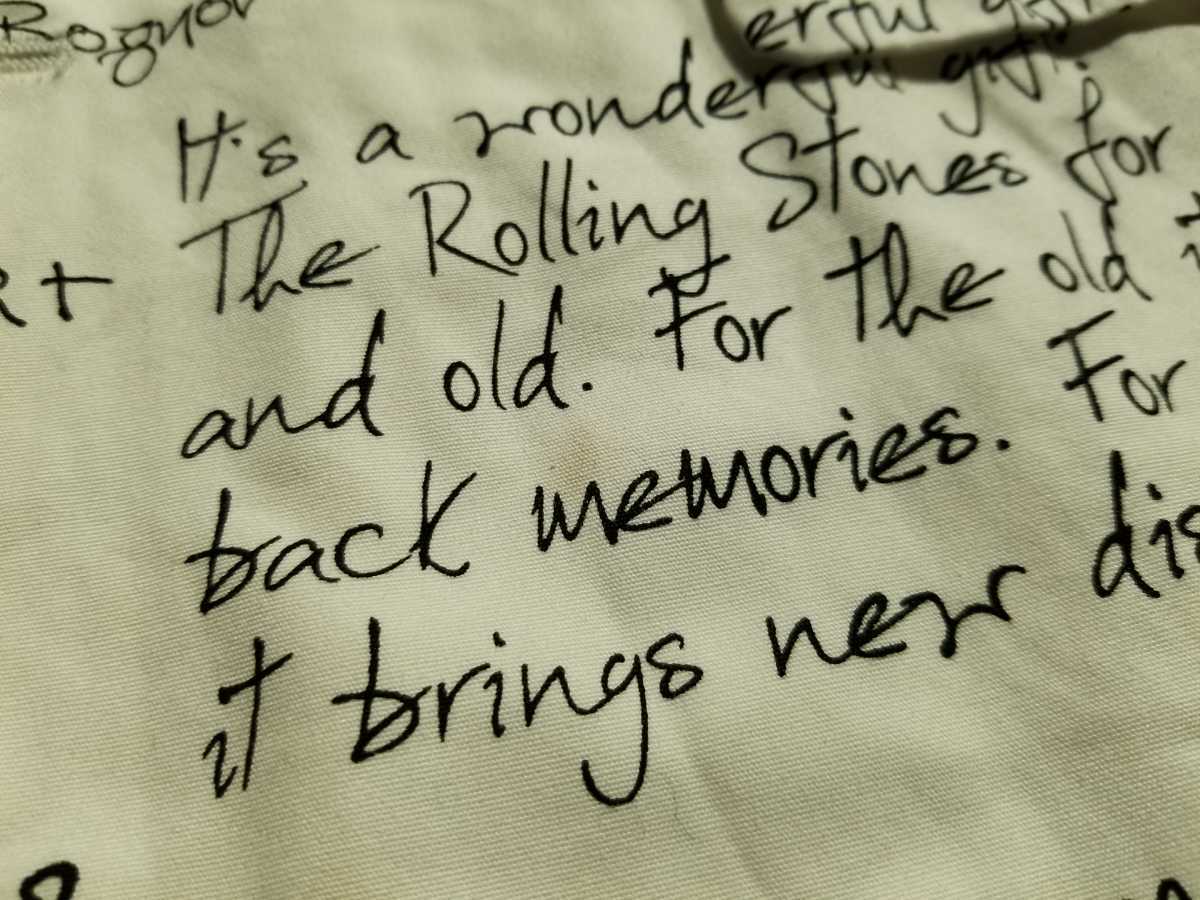 Rognor
erful
It's a wonderful gift
The Rolling Stones for
and old. For the old
back memories. For
it brings new dis